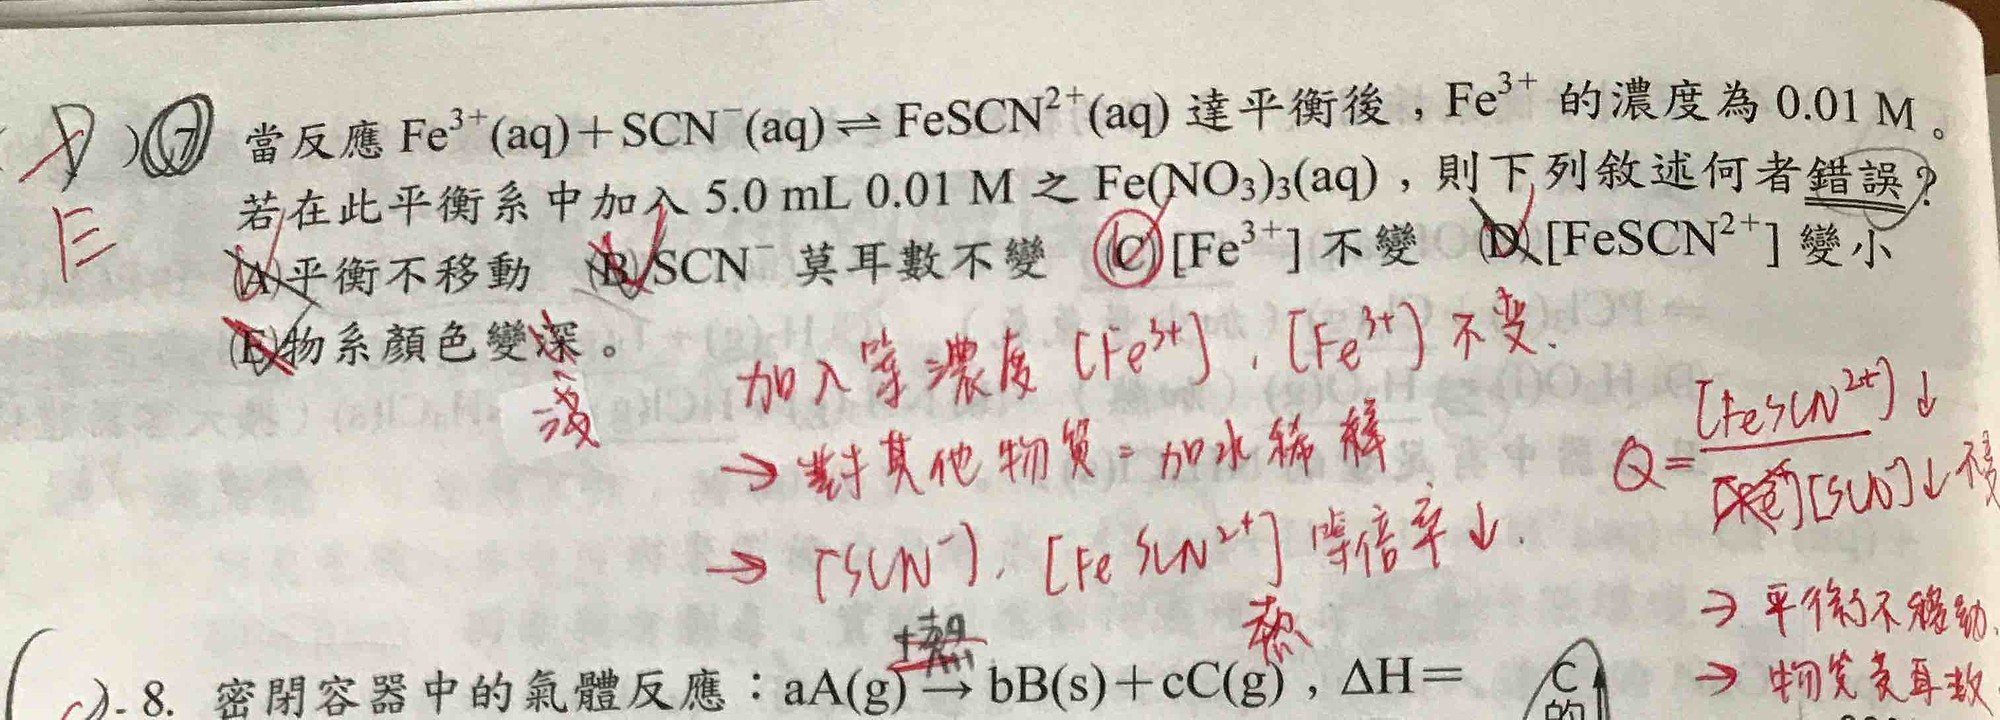 D )7 當反應 Fe³⁺(aq)+SCN⁻(aq)⇌FeSCN²⁺(aq) 達平衡後，Fe³⁺ 的濃度為 0.01 M。
E 若在此平衡系中加入 5.0 mL 0.01 M 之 Fe(NO₃)₃(aq)，則下列敘述何者錯誤？
(A)平衡不移動 (B)SCN⁻ 莫耳數不變 (C)[Fe³⁺] 不變 (D)[FeSCN²⁺] 變小
(E)物系顏色變深。
淺
加入等濃度 [Fe³⁺]，[Fe³⁺] 不变.
→ 對其他物質=加水稀釋
→ [SCN⁻]、[FeSCN²⁺] 等倍率↓.
Q = [FeSCN²⁺]↓ / [Fe][SCN]↓ 不变
→ 平衡不移動.
→ 物質莫耳數
+熱 熱
8. 密閉容器中的氣體反應：aA(g) → bB(s)+cC(g)，ΔH=
C
的